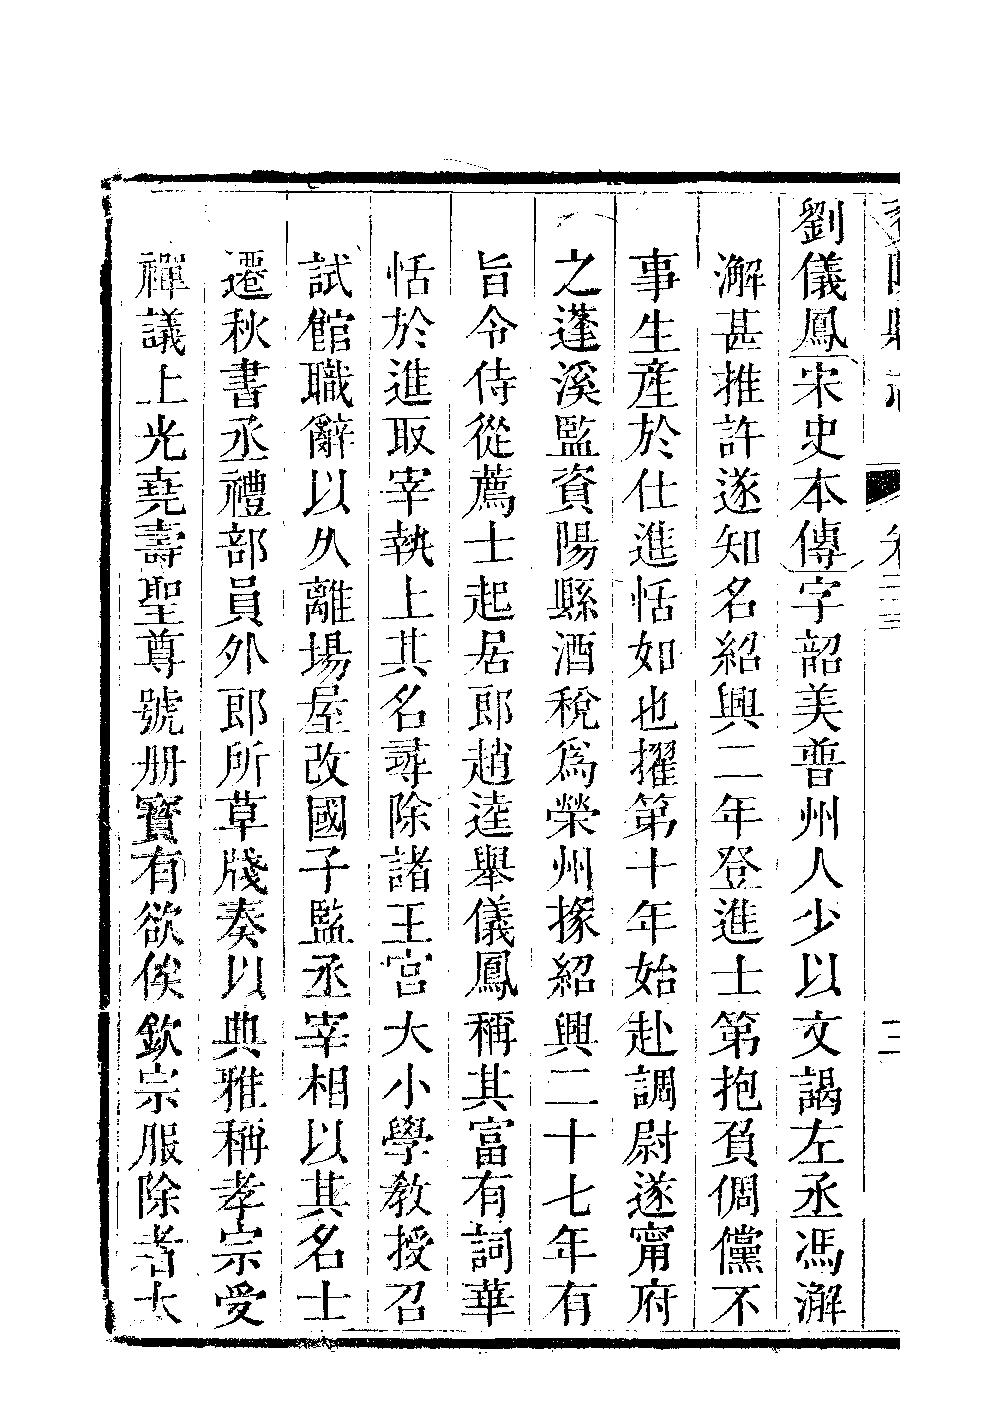 劉儀鳳宋史本傳字韶美普州人少以文謁左丞馮澥
澥甚推許遂知名紹興二年登進士第抱負倜儻不
事生產於仕進恬如也擢第十年始赴調尉遂甯府
之蓬溪監資陽縣酒稅爲榮州掾紹興二十七年有
旨令侍從薦士起居郎趙逵舉儀鳳稱其富有詞華
恬於進取宰執上其名尋除諸王宮大小學教授召
試館職辭以久離場屋改國子監丞宰相以其名士
遷秋書丞禮部員外郎所草牋奏以典雅稱孝宗受
禪議上光堯壽聖尊號册寶有欲俟欽宗服除者太